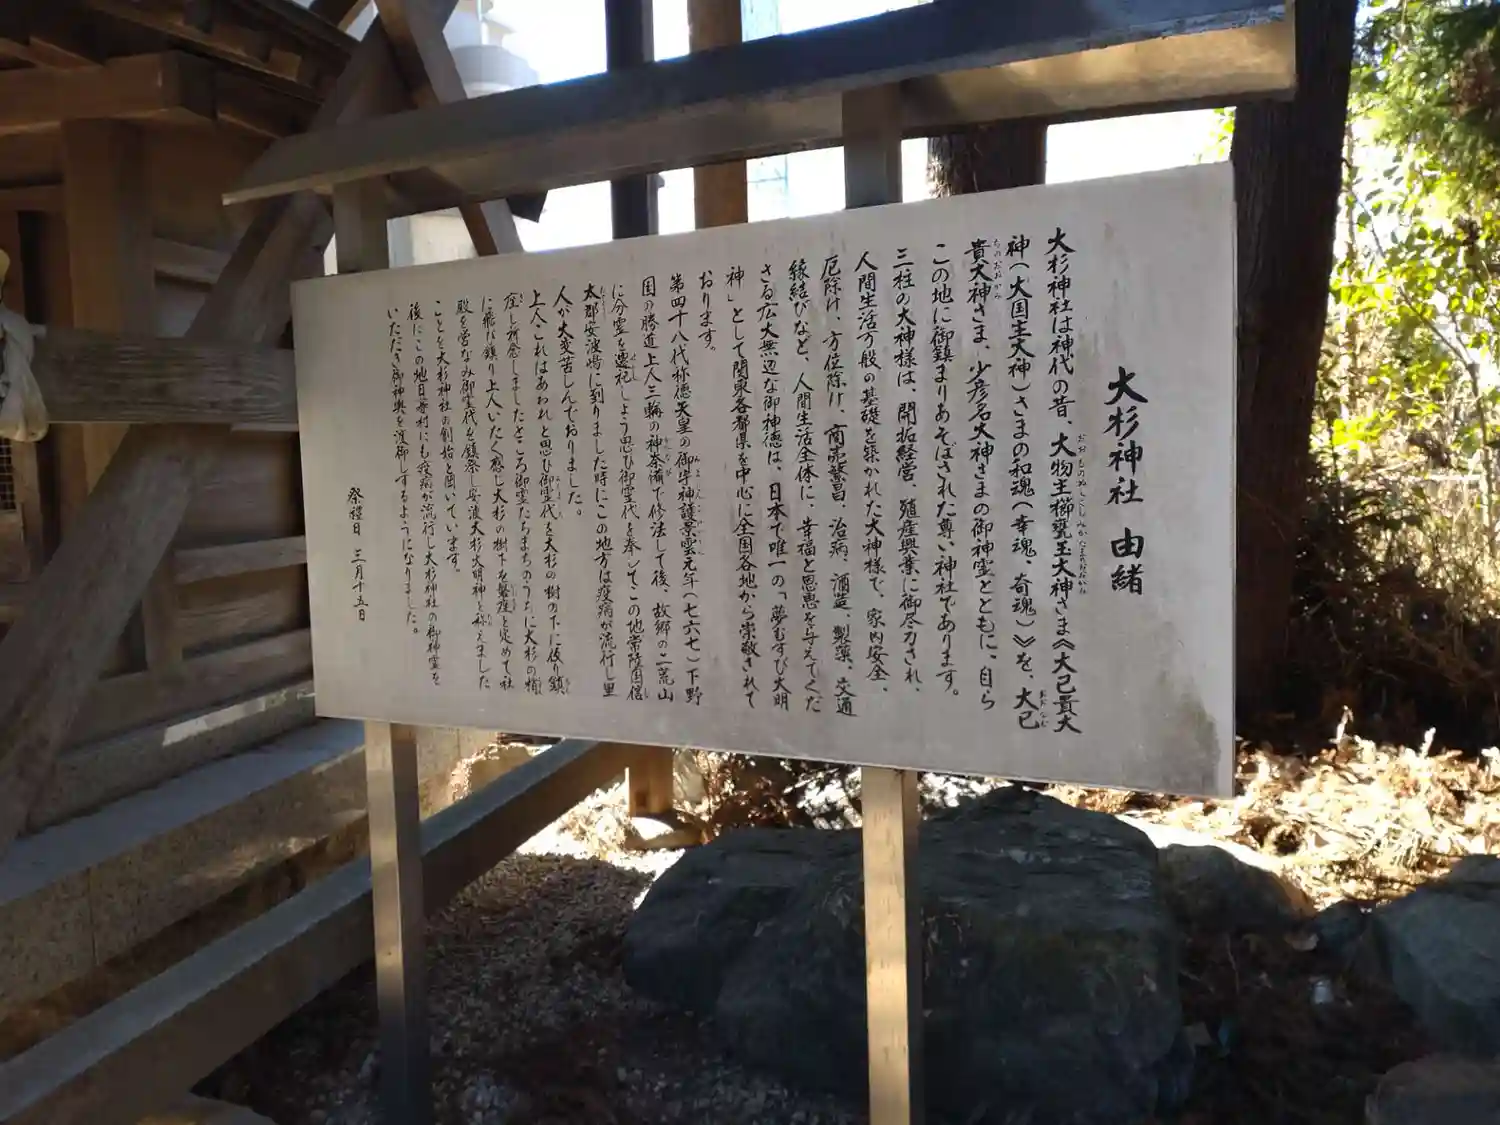 大杉神社 由緒
大杉神社は神代の昔、大物主櫛甕玉大神さま《大己貴大
神(大国主大神)さまの和魂(幸魂、奇魂)》を、大己
貴大神さま、少彦名大神さまの御神霊とともに、自ら
この地に御鎮まりあそばされた尊い神社であります。
三柱の大神様は、開拓経営、殖産興業に御尽力され、
人間生活万般の基礎を築かれた大神様で、家内安全、
厄除け、方位除け、商売繁昌、治病、酒造、製薬、交通
縁結びなど、人間生活全体に、幸福と恩恵を与えてくだ
さる広大無辺な御神徳は、日本で唯一の「夢むすび大明
神」として関東各都県を中心に全国各地から崇敬されて
おります。
第四十八代称徳天皇の御宇神護景雲元年(七六七)下野
国の勝道上人三輪の神奈備で修法して後、故郷の二荒山
に分霊を遷祀しよう思ひ御霊代を奉じてこの地常陸国信
太郡安波嶋に到りました時にこの地方は疫病が流行し里
人が大変苦しんでおりました。
上人これはあわれと思ひ御霊代を大杉の樹の下に仮り鎮
座し祈念しましたところ御霊たちまちのうちに大杉の梢
に飛び鎮り上人いたく感し大杉の樹下を磐座と定めて社
殿を営なみ御霊代を鎮祭し安波大杉大明神と称えました
ことを大杉神社の創始と固いています。
後にこの地日吉村にも疫病が流行し大杉神社の御神霊を
いただき御神輿を渡御しするようになりました。
祭禮日 三月十五日